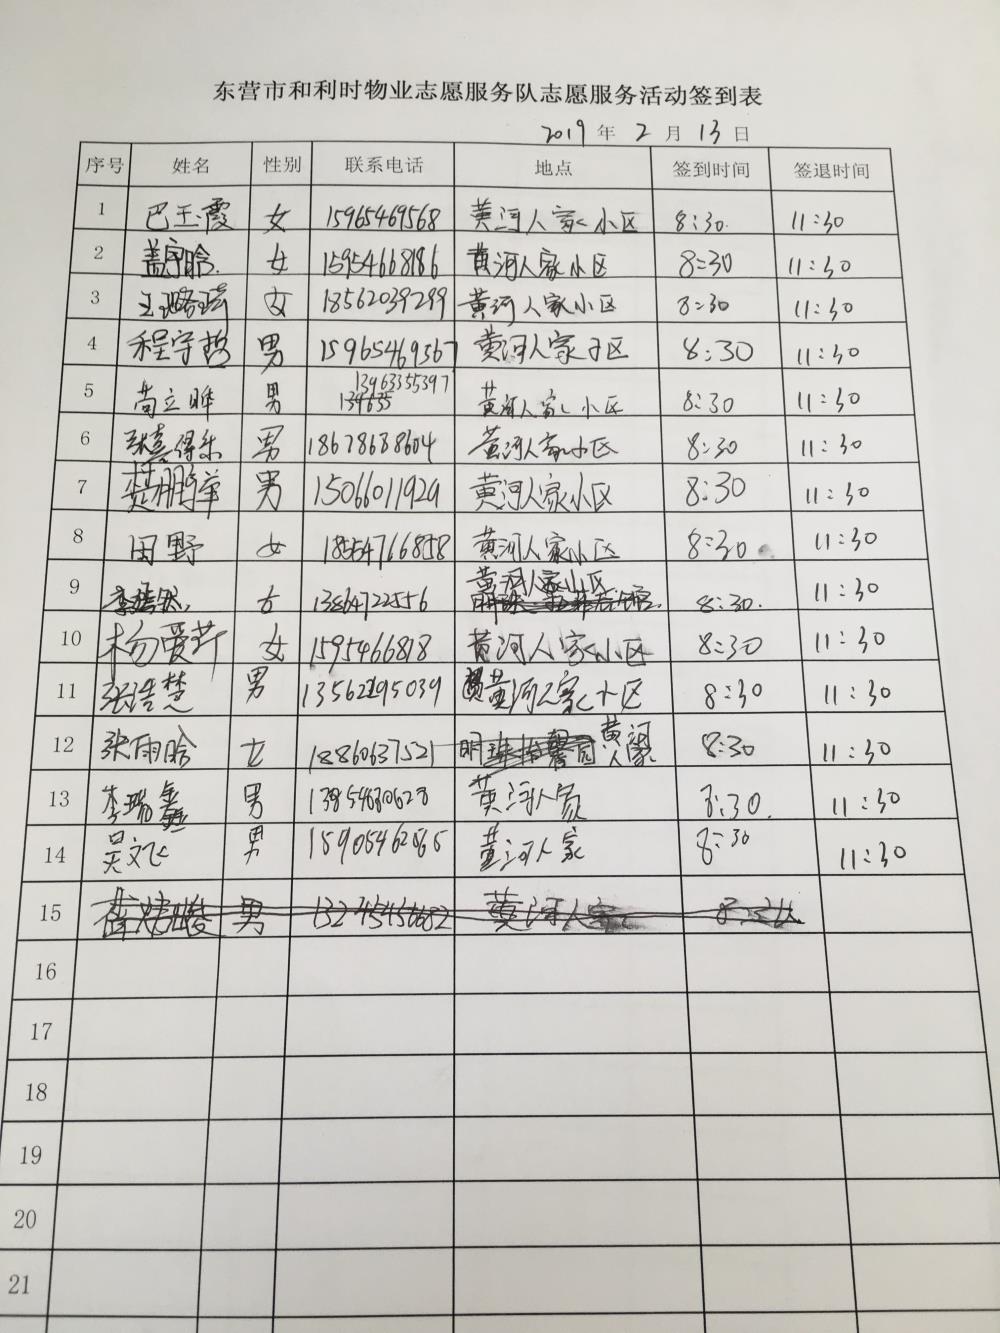 东营市和利时物业志愿服务队志愿服务活动签到表
2019 年 2 月 13 日
序号 姓名 性别 联系电话 地点 签到时间 签退时间
1 巴玉霞 女 15965469568 黄河人家小区 8:30 11:30
2 盖宇晗 女 15954668186 黄河人家小区 8:30 11:30
3 王璐瑶 女 18562039299 黄河人家小区 8:30 11:30
4 程宇哲 男 15965469567 黄河人家小区 8:30 11:30
5 苟立晔 男 13963355397 黄河人家小区 8:30 11:30
6 得乐 男 18678688604 黄河人家小区 8:30 11:30
7 楚鹏举 男 15066011929 黄河人家小区 8:30 11:30
8 田野 女 18554766858 黄河人家小区 8:30 11:30
9 女 13864722556 黄河人家小区 8:30. 11:30
10 杨爱芹 女 1595466818 黄河人家小区 8:30 11:30
11 张浩楚 男 13562195039 黄河人家小区 8:30 11:30
12 张雨晗 女 18860637521 黄河人家 8:30 11:30
13 李瑞鑫 男 黄河人家 8:30. 11:30
14 吴文飞 男 15905462065 黄河人家 8:30 11:30
15 男 黄河人家
16
17
18
19
20
21